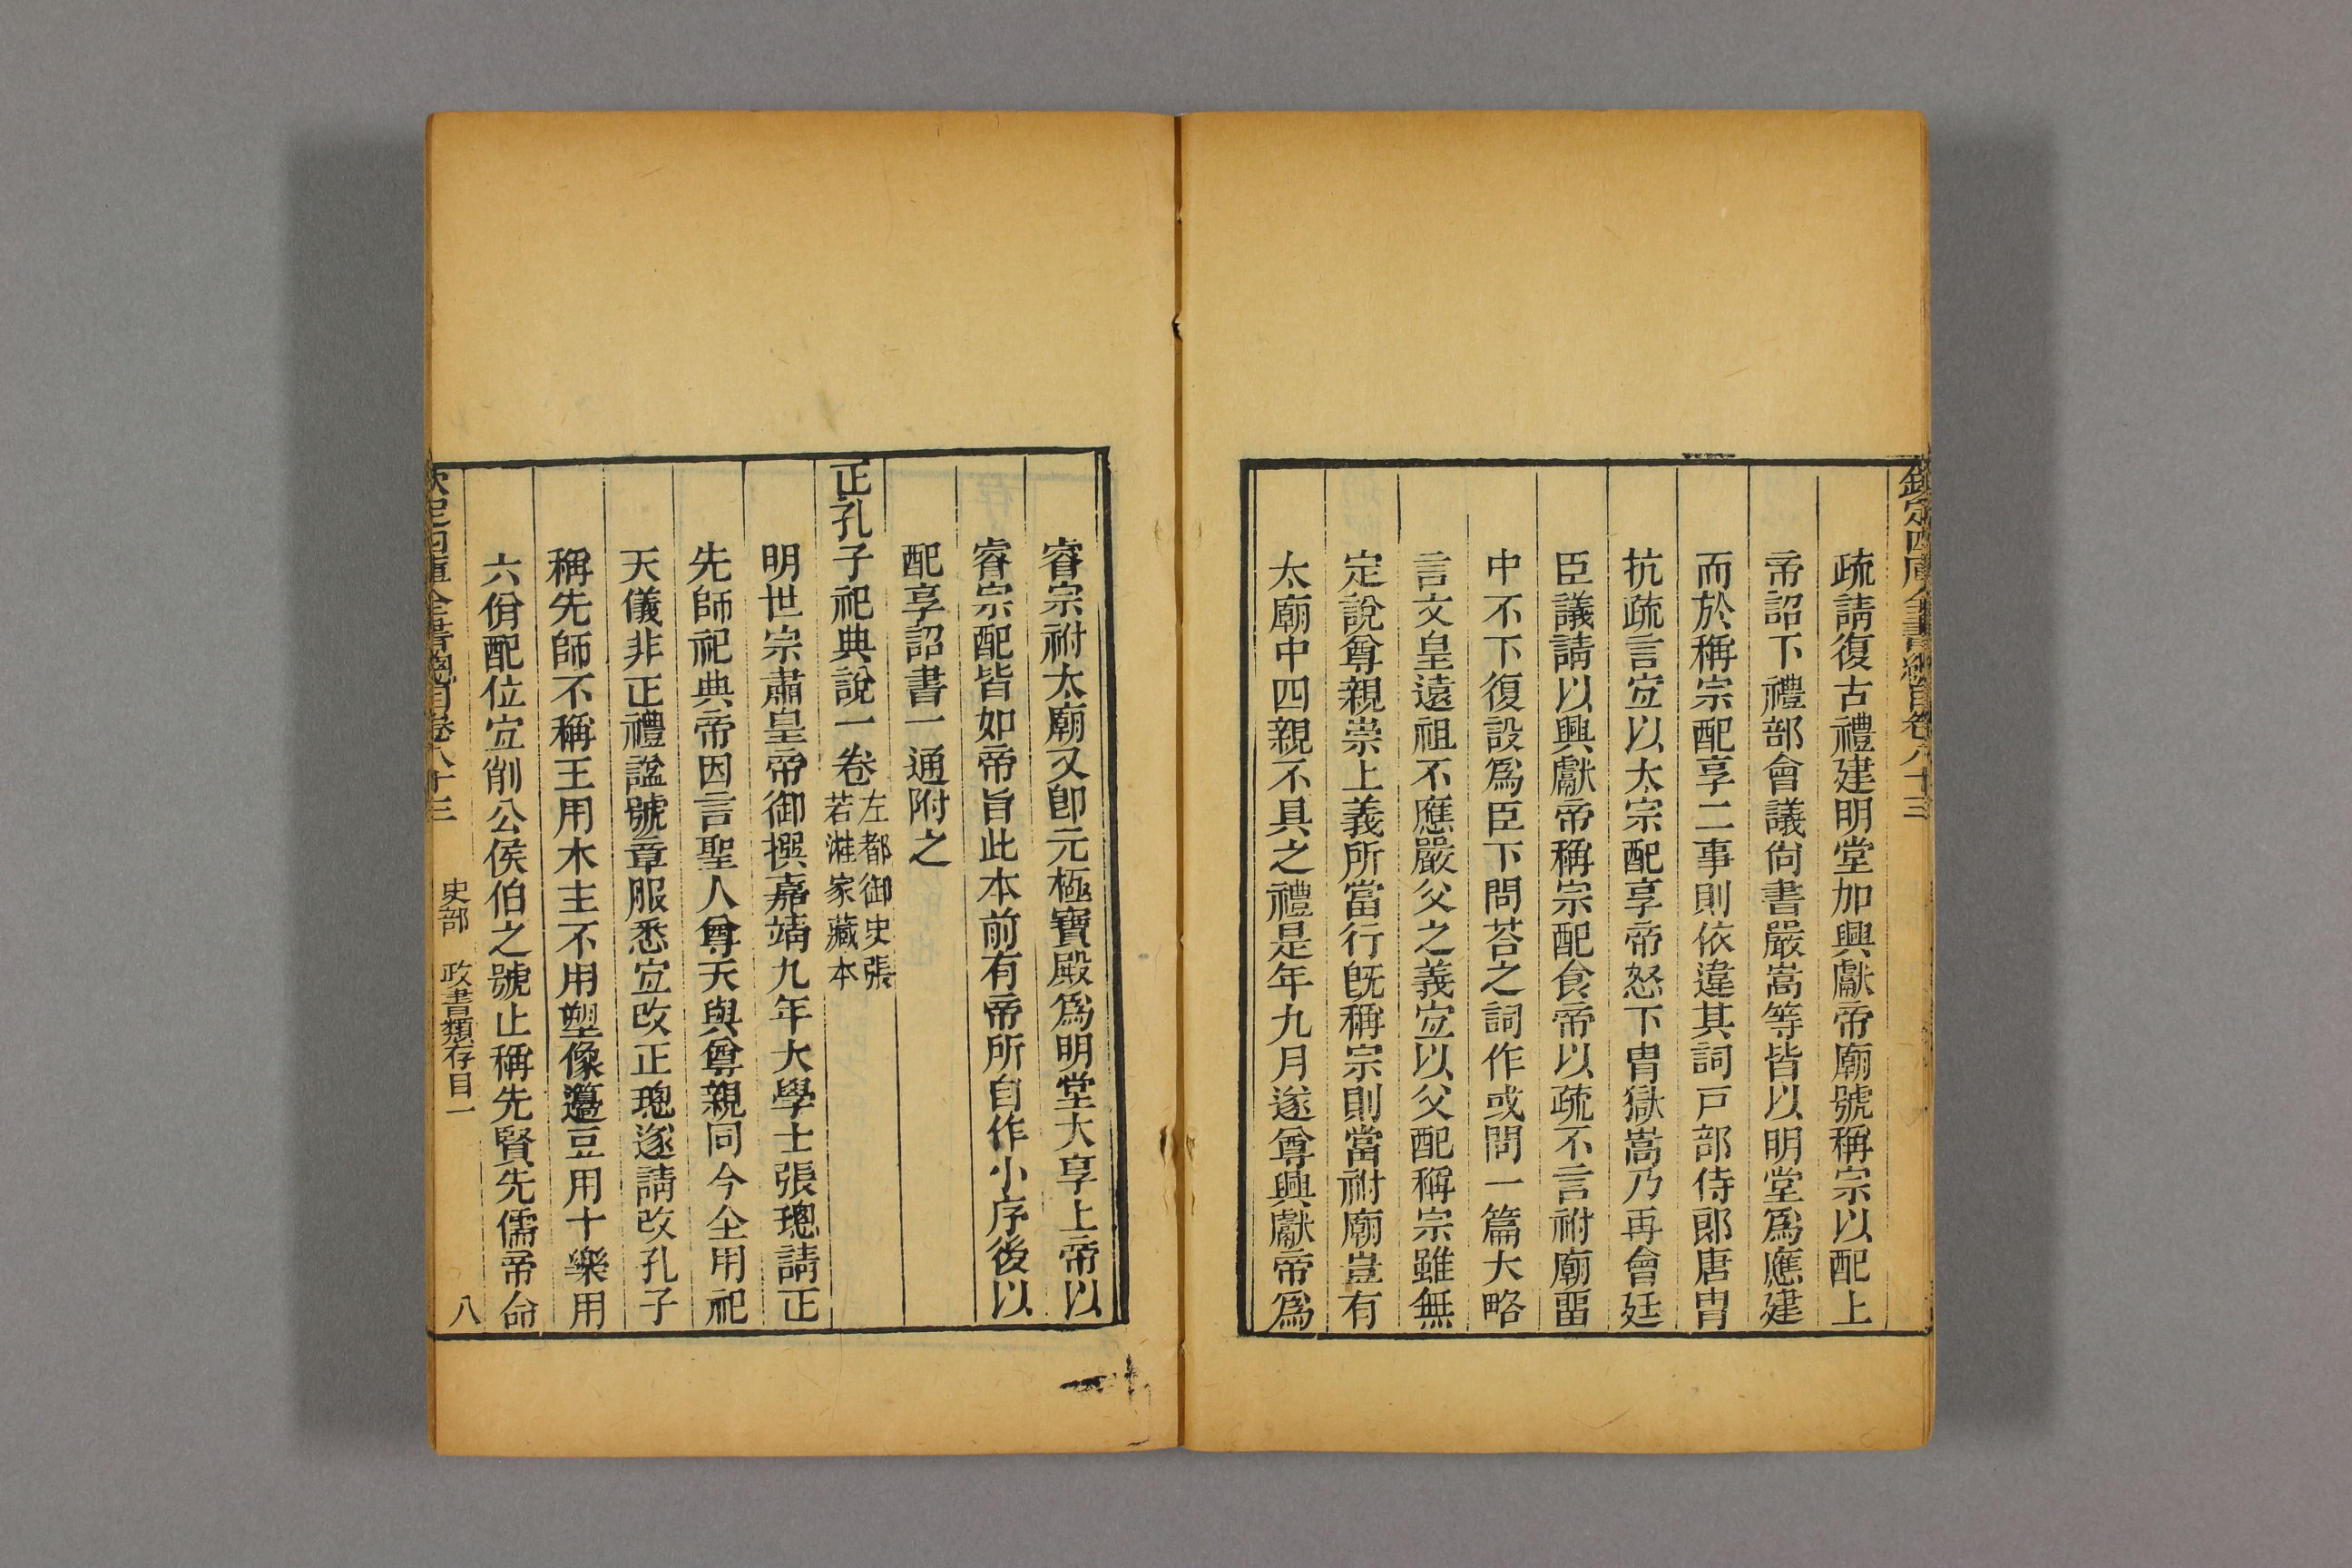 欽定四庫全書總目卷八十三
疏請復古禮建明堂加興獻帝廟號稱宗以配上
帝詔下禮部會議尙書嚴嵩等皆以明堂爲應建
而於稱宗配享二事則依違其詞戸部侍郎唐冑
抗疏言宜以太宗配享帝怒下冑獄嵩乃再會廷
臣議請以興獻帝稱宗配食帝以疏不言祔廟畱
中不下復設爲臣下問荅之詞作或問一篇大略
言文皇遠祖不應嚴父之義宜以父配稱宗雖無
定說尊親崇上義所當行旣稱宗則當祔廟豈有
太廟中四親不具之禮是年九月遂尊興獻帝爲
睿宗祔太廟又卽元極寶殿爲明堂大享上帝以
睿宗配皆如帝旨此本前有帝所自作小序後以
配享詔書一通附之
正孔子祀典說一卷左都御史張
若溎家藏本
明世宗肅皇帝御撰嘉靖九年大學士張璁請正
先師祀典帝因言聖人尊天與尊親同今全用祀
天儀非正禮諡號章服悉宜改正璁遂請改孔子
稱先師不稱王用木主不用塑像籩豆用十樂用
六佾配位宜削公侯伯之號止稱先賢先儒帝命
欽定四庫全書總目卷八十三 史部 政書類存目一 八